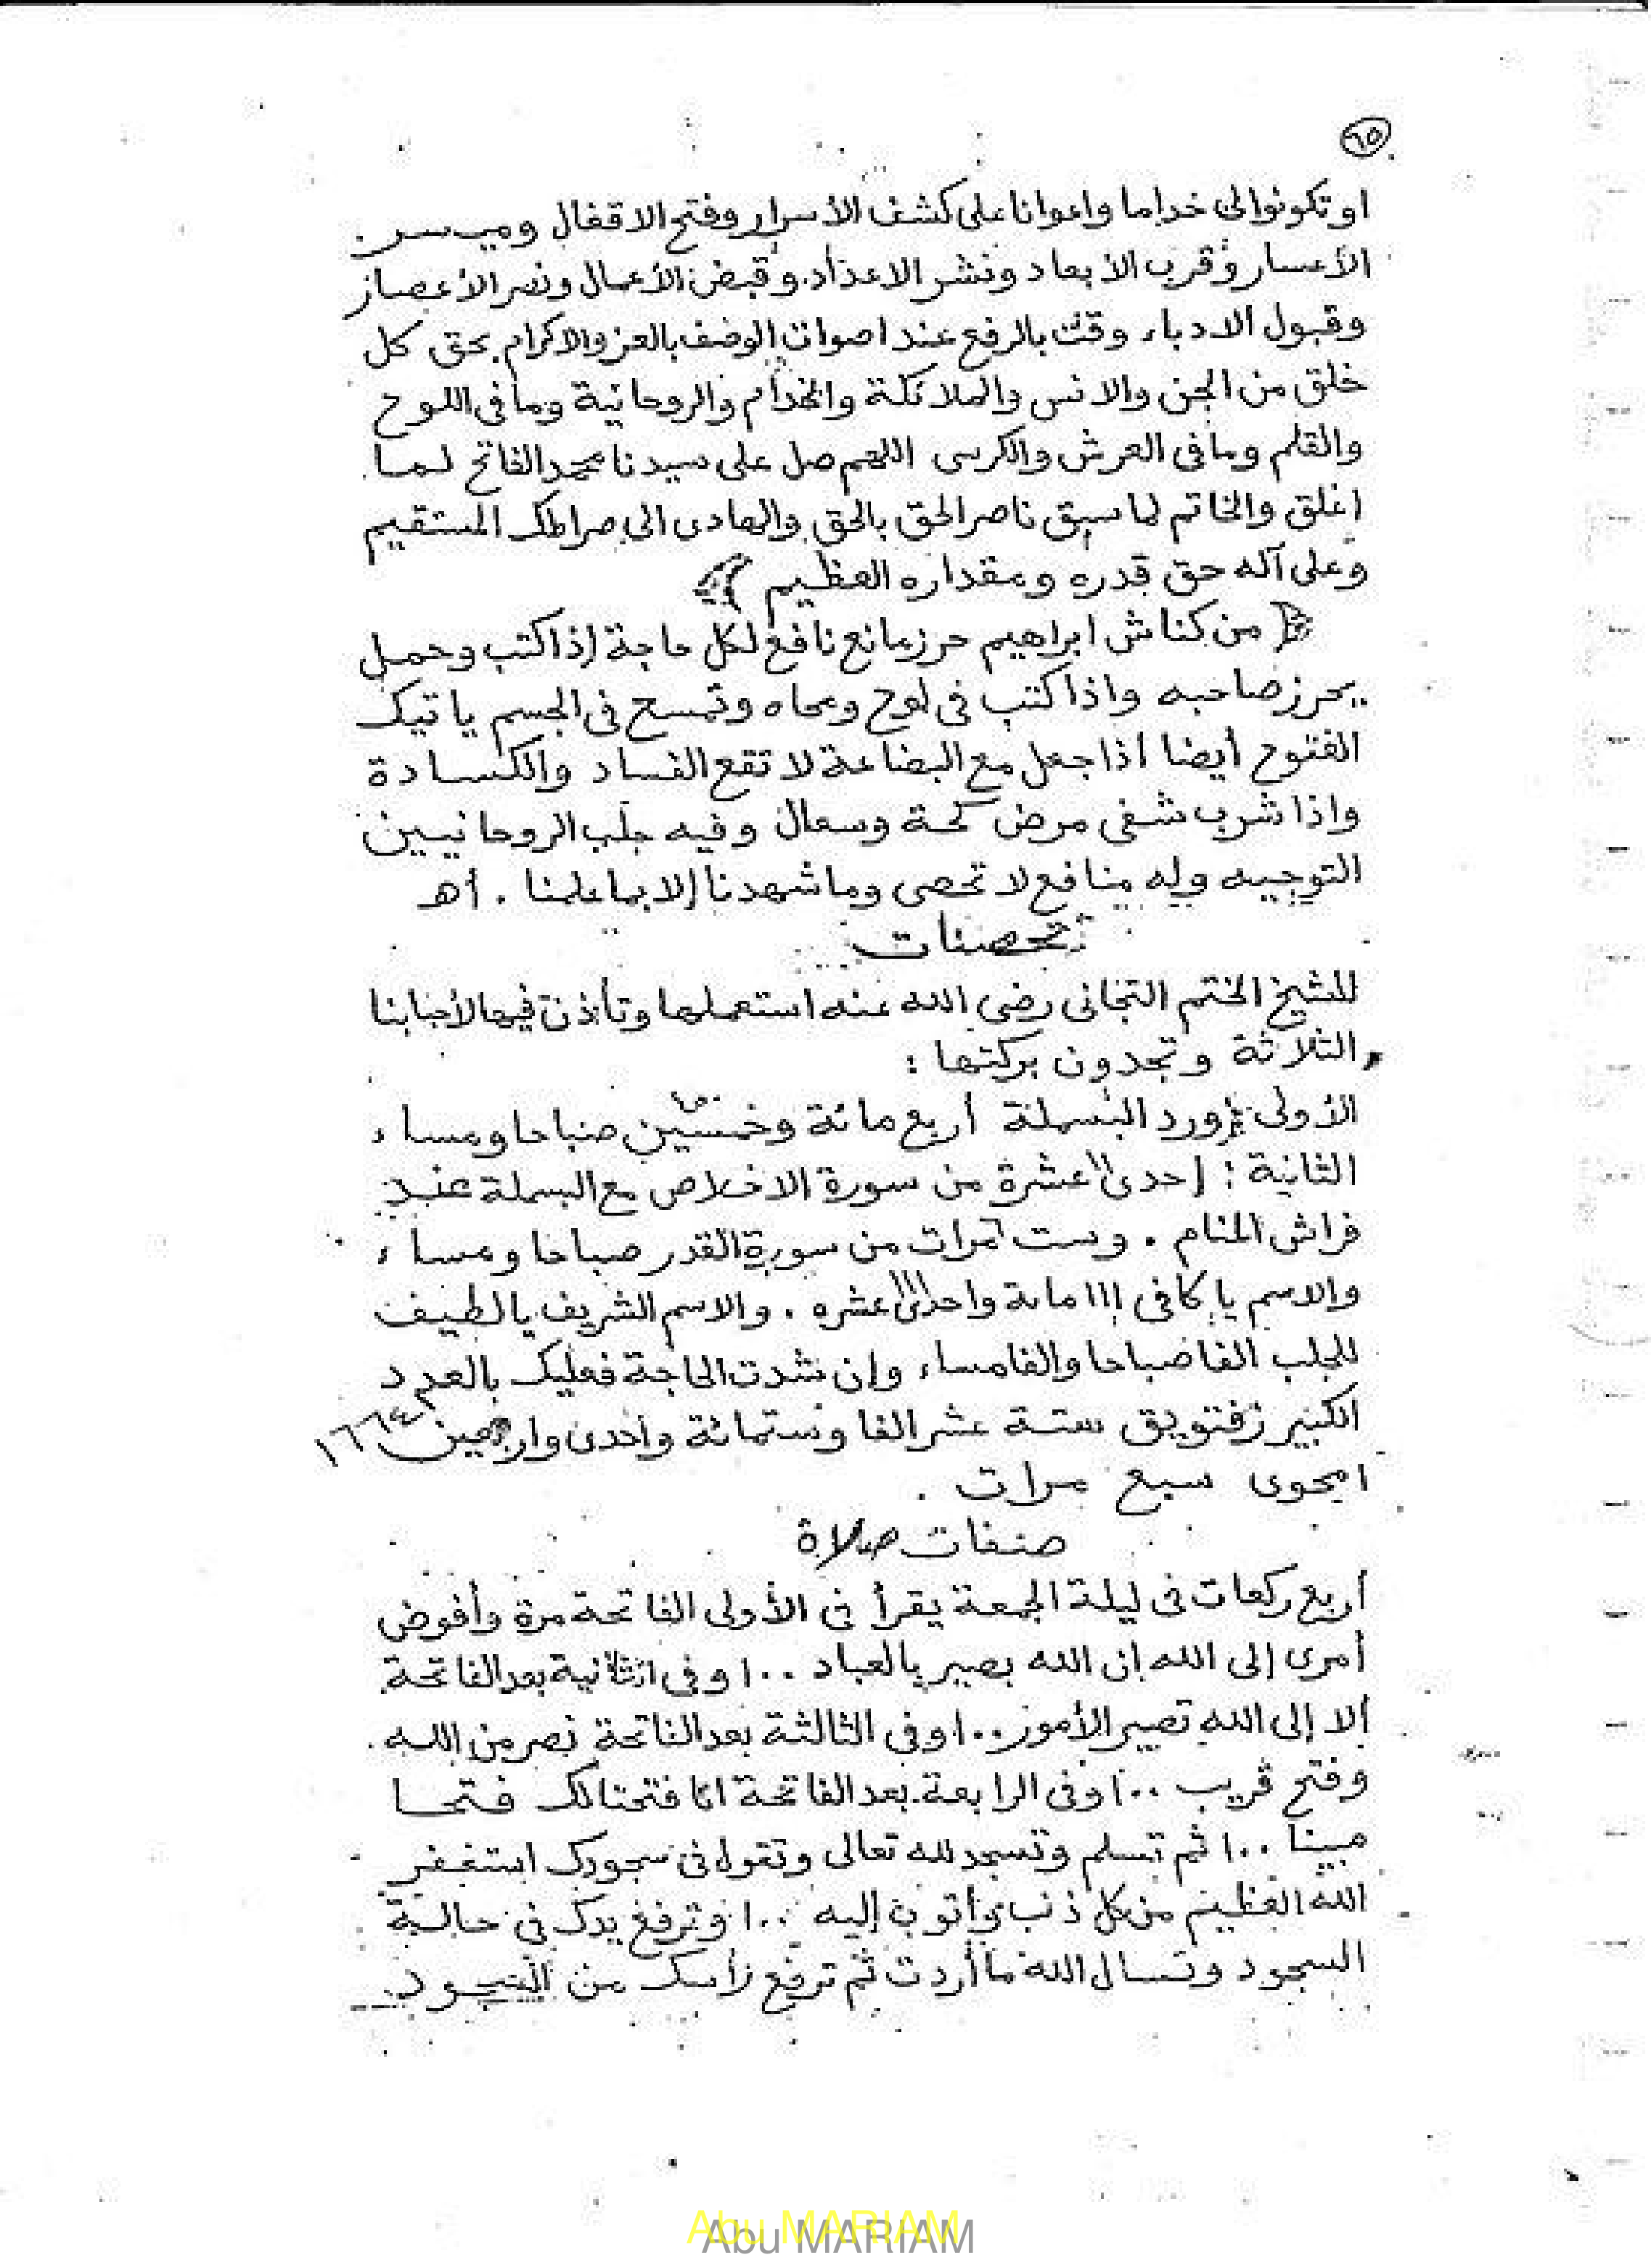 ٦٥
او تكونوا لى خداما واعوانا على كشف الأسرار وفتح الاقفال وميسر
الأعسار وقرب الابعاد ونشر الاعداد وقبض الأعمال ونصر الأعصار
وقبول الادباء وقت بالرفع عند اصوات الوصف بالعز والاكرام بحق كل
خلق من الجن والانس والملائكة والخدام والروحانية وما فى اللوح
والقلم وما فى العرش والكرسى اللهم صل على سيدنا محمد الفاتح لما
اغلق والخاتم لما سبق ناصر الحق بالحق والهادى الى صراطك المستقيم
وعلى آله حق قدره ومقداره العظيم
من كناش ابراهيم حرز مانع نافع لكل حاجة إذا كتب وحمل
يحرز صاحبه واذا كتب فى لوح ومحاه وتمسح فى الجسم ياتيك
الفتوح أيضا اذا جعل مع البضاعة لا تقع الفساد والكسادة
واذا شرب شفى مرض كحة وسعال وفيه جلب الروحانيين
التوجيه وله منافع لا تحصى وما شهدنا إلا بما علمنا . أهـ
تحصنات
للشيخ الختم التجانى رضى الله عنه استعملها وتأذن فيها لأحبابنا
الثلاثة وتجدون بركتها :
الأولى ورد البسملة أربع مائة وخمسين صباحا ومساء
الثانية : إحدى ١١ عشرة من سورة الاخلاص مع البسملة عند
فراش المنام . وست ٦ مرات من سورة القدر صباحا ومساء
والاسم يا كافى ١١١ مائة واحدى ١١١ عشره . والاسم الشريف يا لطيف
للجلب الفا صباحا والفا مساء وإن شدت الحاجة فعليك بالعدد
الكبير ستة عشر الفا وستمائة واحدى واربعين ١٦٦٤١
سبع مرات .
صفات صلاة
أربع ركعات فى ليلة الجمعة يقرأ فى الأولى الفاتحة مرة وأفوض
أمرى إلى الله ان الله بصير بالعباد ١٠٠ وفى الثانية بعد الفاتحة
ألا إلى الله تصير الأمور ١٠٠ وفى الثالثة بعد الفاتحة نصر من الله
وفتح قريب ١٠٠ وفى الرابعة بعد الفاتحة انا فتحنا لك فتحا
مبينا ١٠٠ ثم تسلم وتسجد لله تعالى وتقول فى سجودك استغفر
الله العظيم من كل ذنب وأتوب إليه ١٠٠ وترفع يدك فى حالة
السجود وتسال الله ما أردت ثم ترفع رأسك من السجود
Abu MARIAM